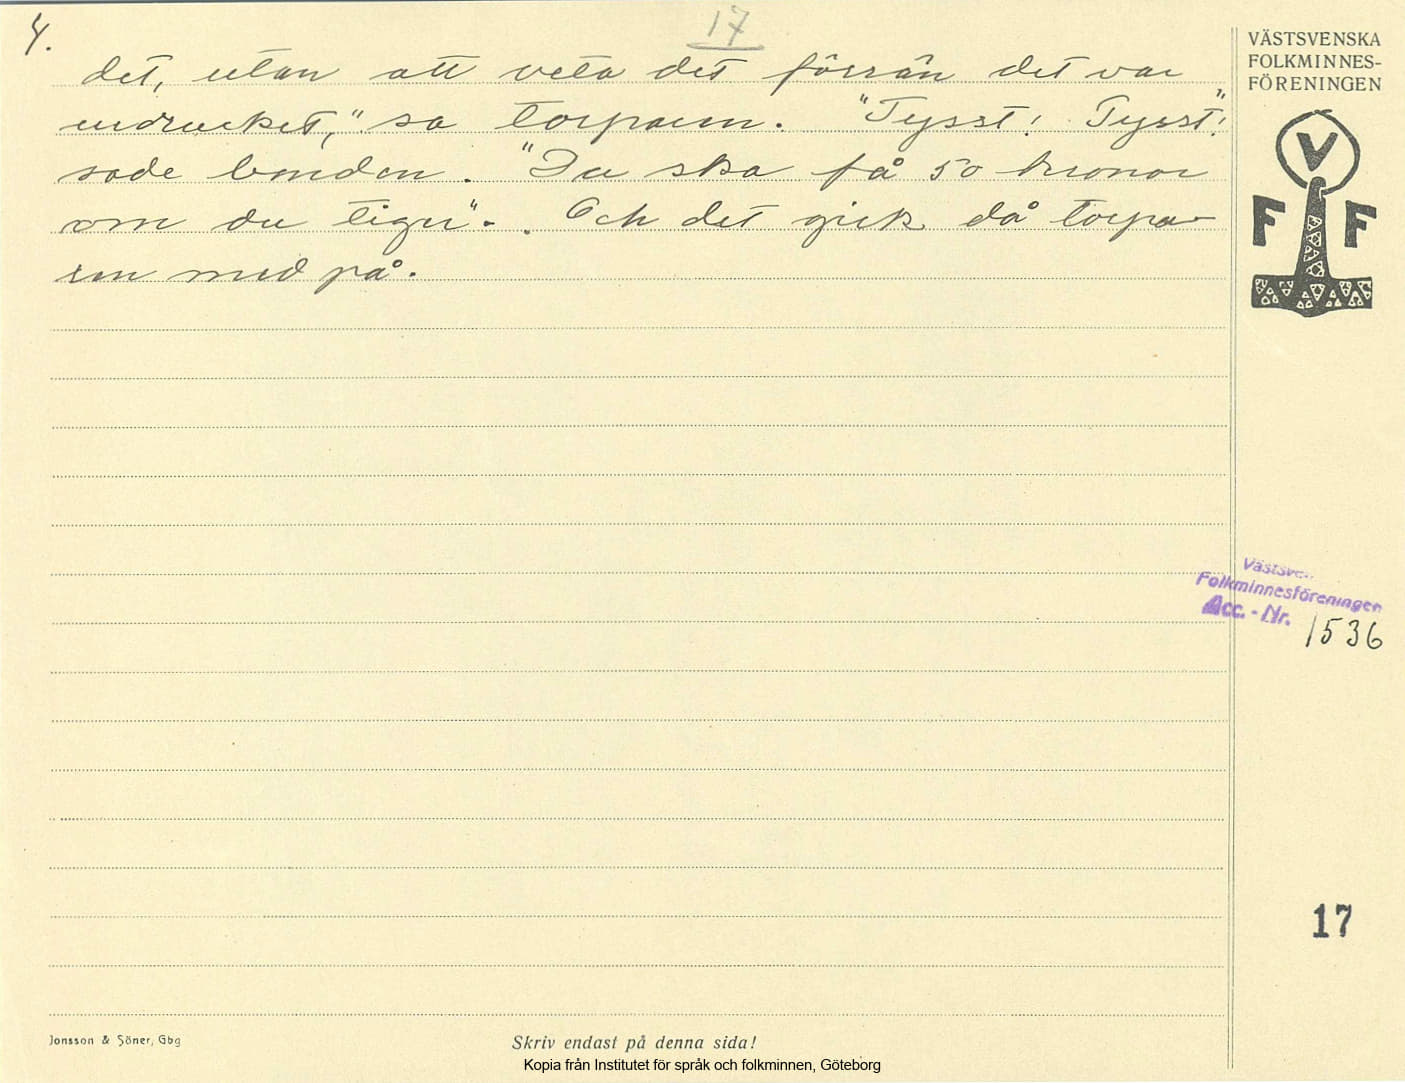 4.
17
det, utan att veta det förrän det var
undrucket," sa torparen. "Tysst! Tysst!"
sade bonden. "Du ska få 50 kronor
om du tiger". Och det gick då torpa-
ren med på.
VÄSTSVENSKA
FOLKMINNES-
FÖRENINGEN
V
F F
Folkminnesföreningen
Acc. - Nr. 1536
17
Jonsson & Söner, Gbg
Skriv endast på denna sida!
Kopia från Institutet för språk och folkminnen, Göteborg